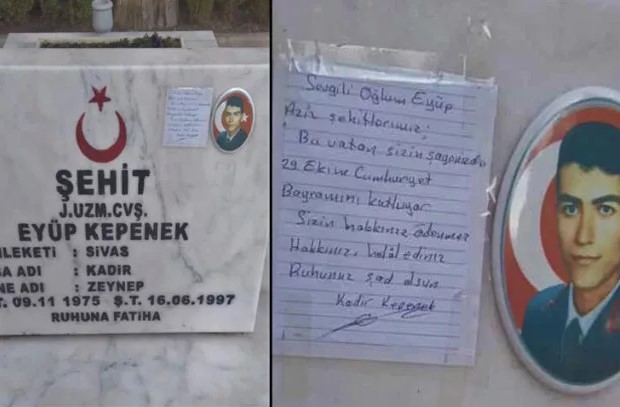 ŞEHİT
J.UZM.ÇVŞ.
EYÜP KEPENEK
MLEKETİ : SİVAS
BA ADI : KADİR
NE ADI : ZEYNEP
T. 09.11 1975 Ş.T. 16.06.1997
RUHUNA FATİHA
Sevgili Oğlum Eyüp
Aziz şehitlerimiz;
Bu vatan sizin sayenizde
29 Ekim Cumhuriyet
Bayramını kutluyor
Sizin hakkınız ödenmez
Hakkınızı helâl ediniz
Ruhunuz şad olsun
Kadir Kepenek